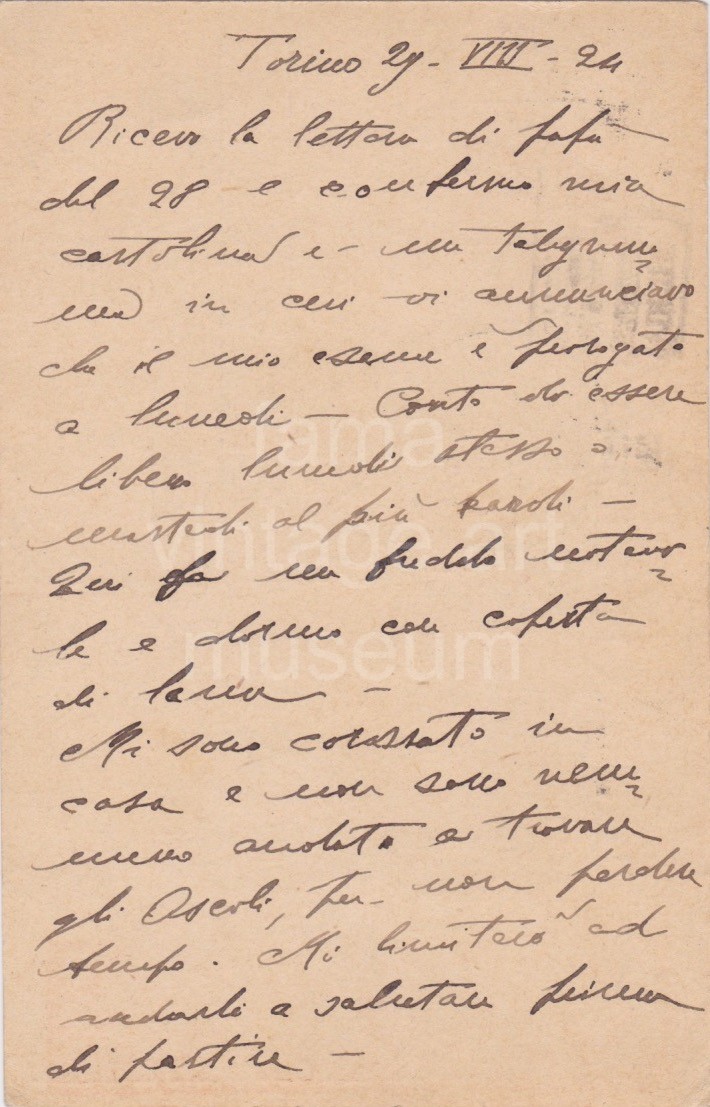 Torino 29 - VIII - 24
Ricevo la lettera di papà
del 28 e confermo mia
cartolina e - un telegram=
ma in cui vi annunciavo
che il mio esame è prorogato
a lunedì - Conto di essere
libero lunedì stesso o
martedì al più tardi -
Qui fa un freddo notevo=
le e dormo con coperta
di lana -
Mi sono corazzato in
casa e non sono nem=
meno andato a trovare
gli Ascoli, per non perdere
tempo. Mi limiterò ad
andarli a salutare prima
di partire -
fama
vintage art
museum